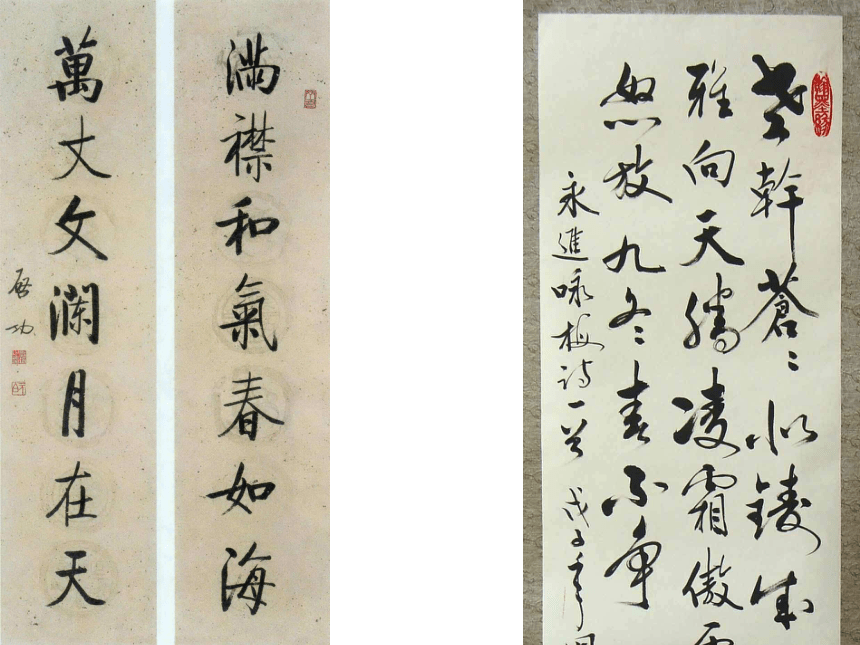 滿襟和氣春如海
萬丈文瀾月在天
啓功
老幹蒼蒼似鑄成
雅向天騰凌霜傲
怒放九冬春不争
永進咏梅诗一首 戊子年